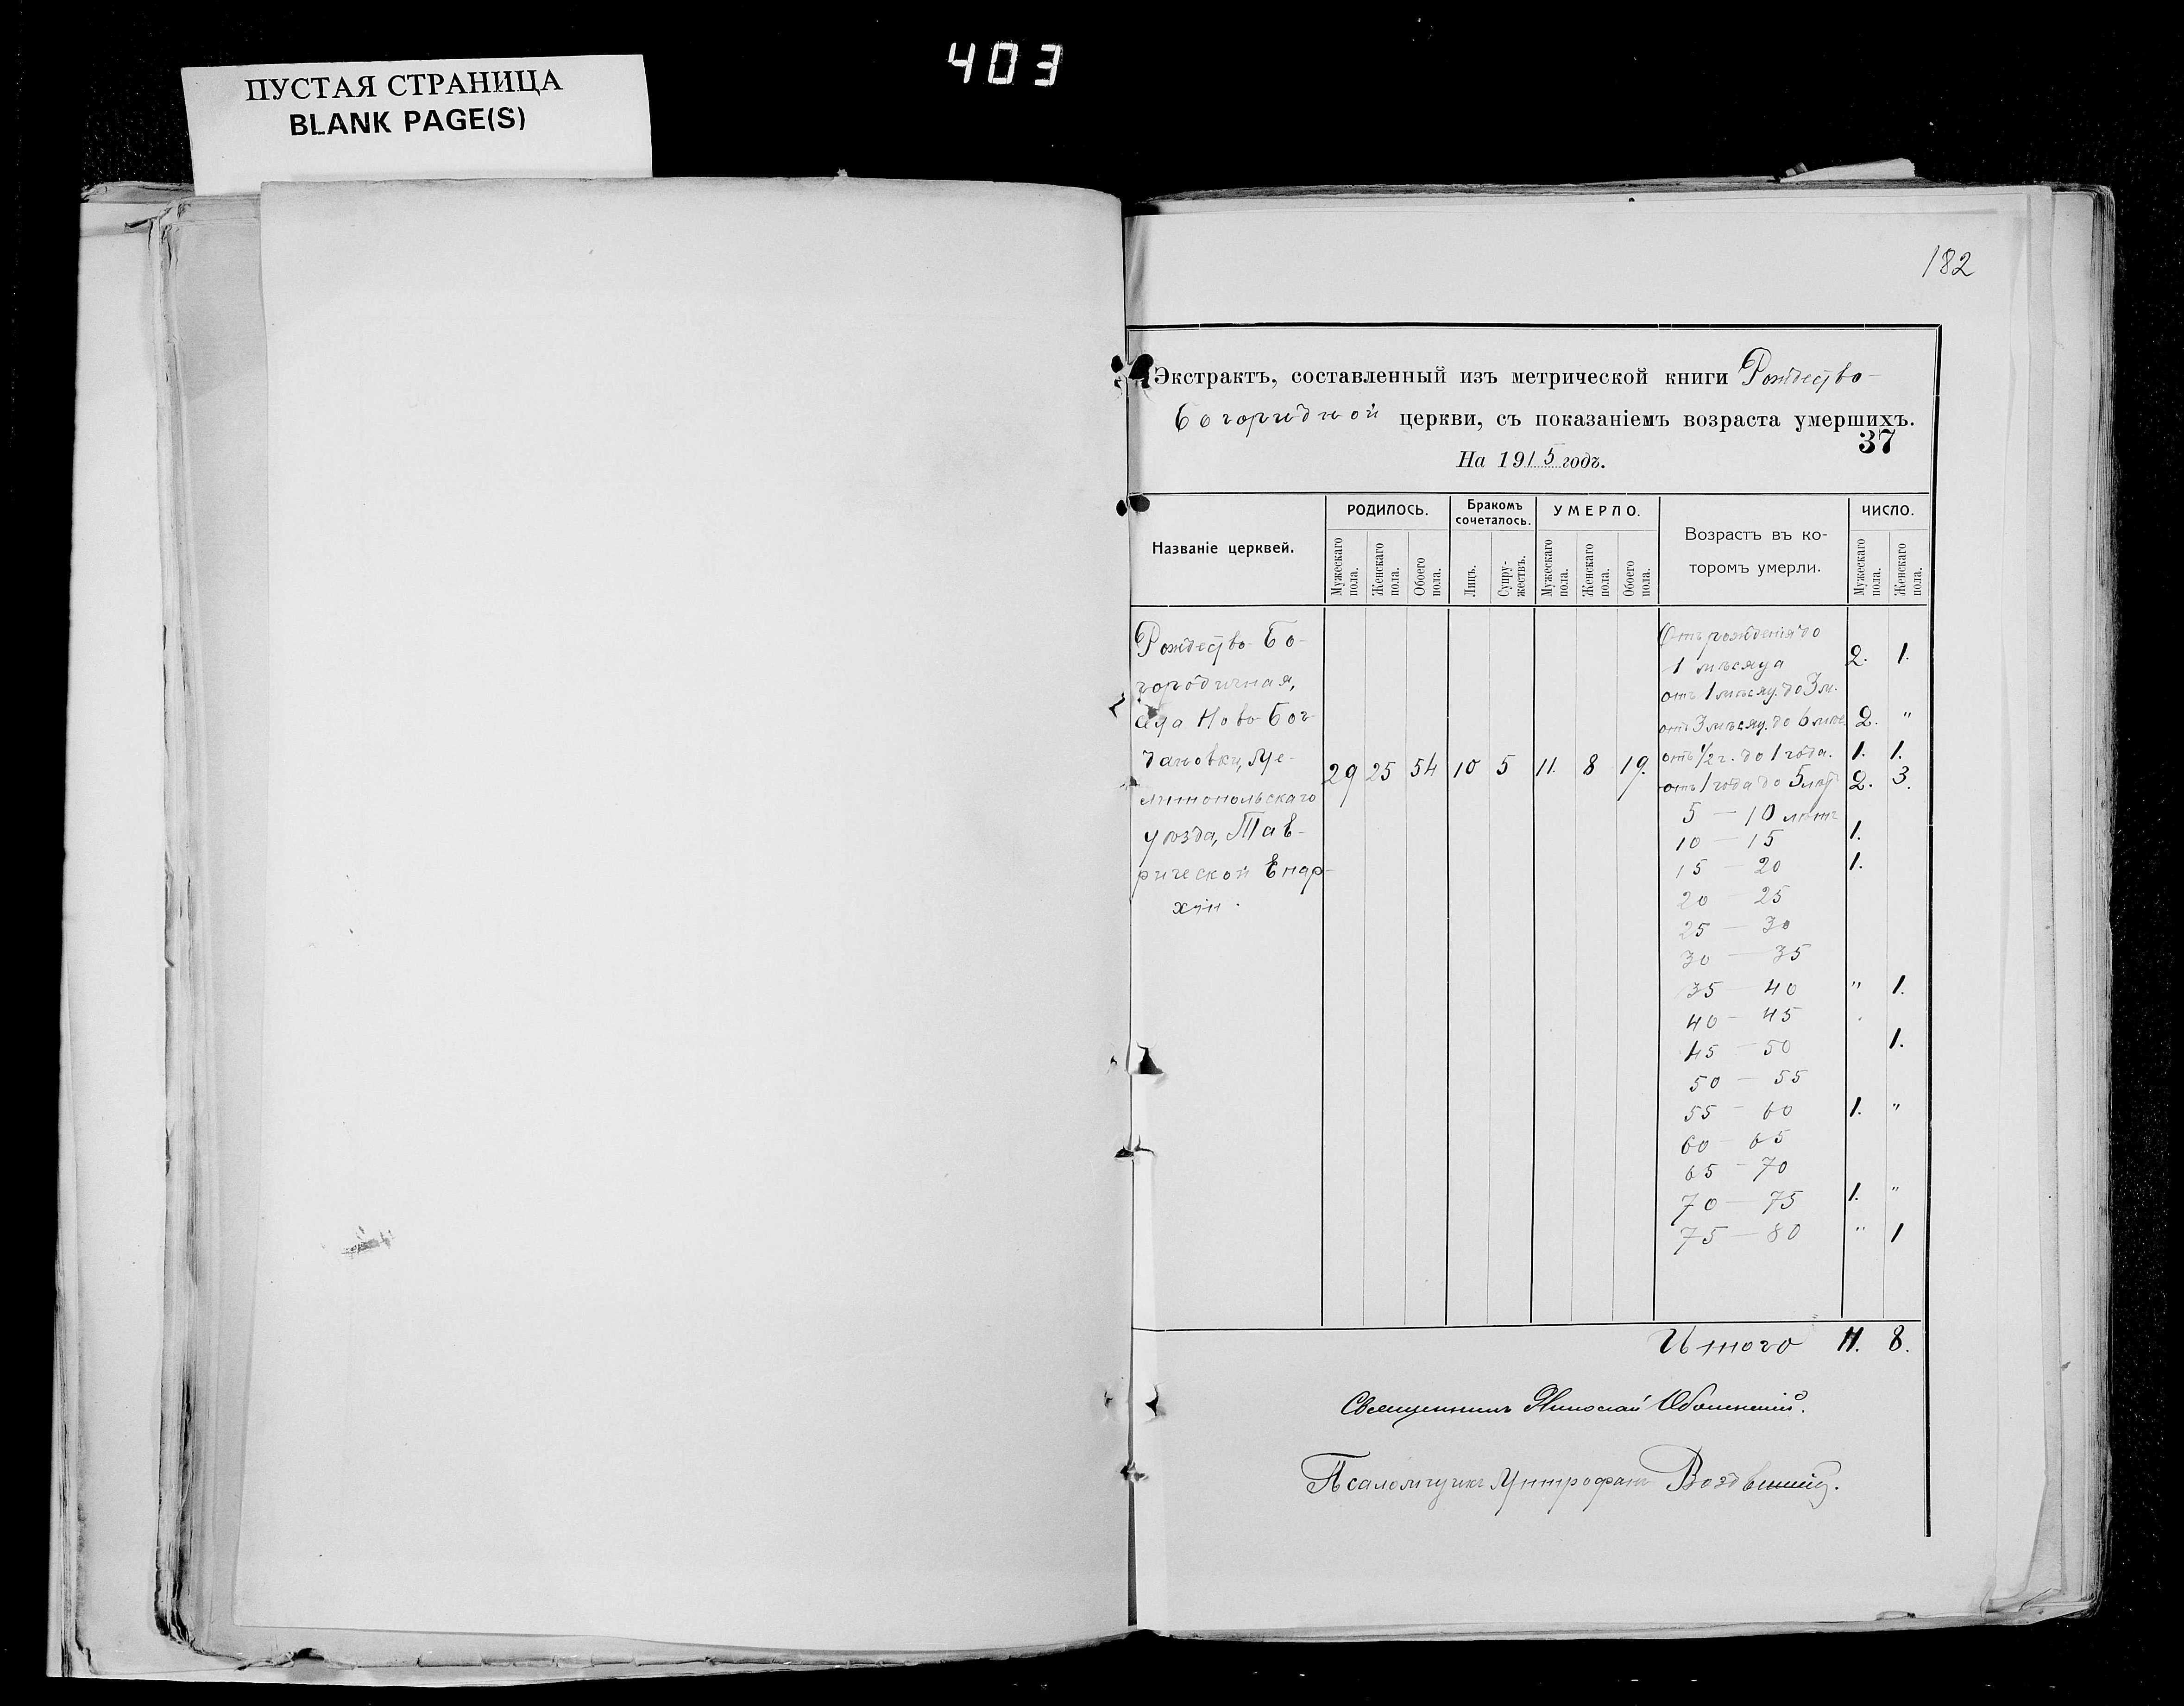 403
ПУСТАЯ СТРАНИЦА
BLANK PAGE(S)
182
Экстрактъ, составленный изъ метрической книги Рождество-
Богородичной церкви, съ показаніемъ возраста умершихъ.
37
На 1915 годъ.
Названіе церквей.
РОДИЛОСЬ.
Бракомъ сочеталось.
УМЕРЛО.
Возрастъ въ ко-
торомъ умерли.
ЧИСЛО.
Мужескаго пола.
Женскаго пола.
Обоего пола.
Лицъ.
Супру-
жествъ.
Мужескаго пола.
Женскаго пола.
Обоего пола.
Мужескаго пола.
Женскаго пола.
Рождество-Бо-
городичная,
села Ново-Бог-
дановки, Ме-
литопольскаго
уѣзда, Тав-
рической Епар-
хіи.
29 25 54 10 5 11. 8 19.
Отъ рожденія до
1 мѣсяца 2. 1.
отъ 1 мѣсяц. до 3 м.
отъ 3 мѣсяц. до 6 мѣс. 2. "
отъ 1/2 г. до 1 года. 1. 1.
отъ 1 года до 5 лѣт 2. 3.
5 — 10 лѣтъ
10 — 15 1.
15 — 20 1.
20 — 25
25 — 30
30 — 35
35 — 40 " 1.
40 — 45
45 — 50 1.
50 — 55
55 — 60 1. "
60 — 65
65 — 70
70 — 75 1. "
75 — 80 " 1
Итого 11. 8.
Священникъ Николай Оболенскій.
Псаломщикъ Митрофанъ